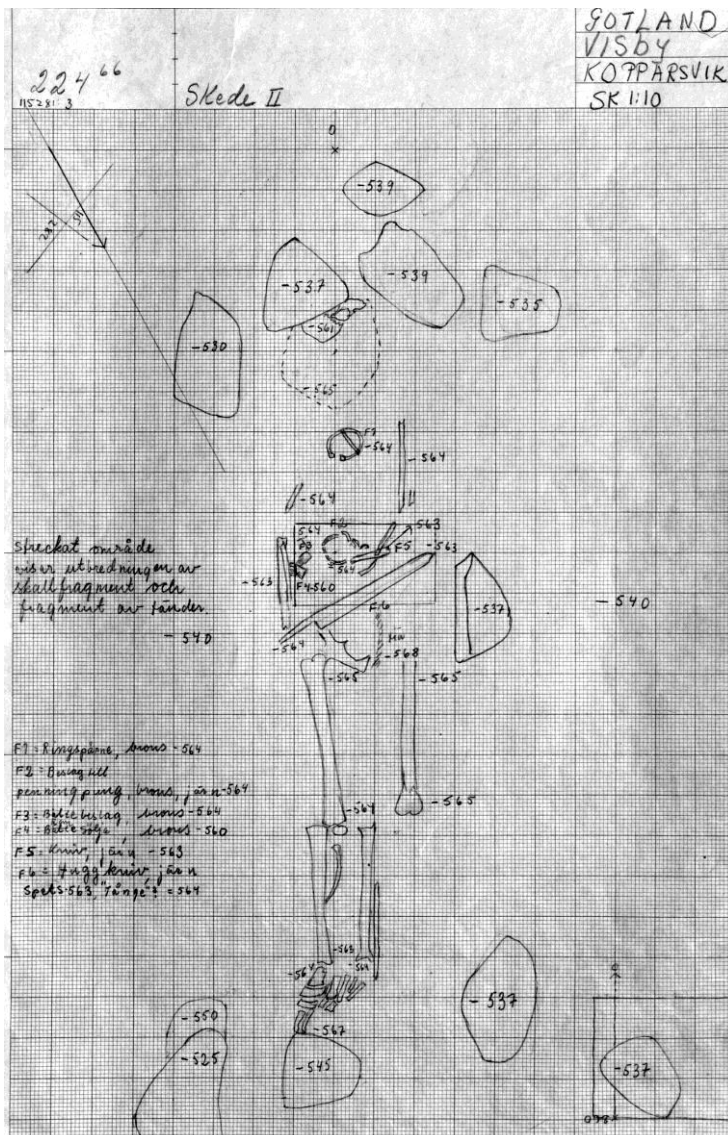 GOTLAND
VISBY
KOPPARSVIK
SK 1:10
224 66
115281:3
Skede II
0
-539
-537
-539
-535
-561
-530
-565
F1
-564
-564
-564
-563
F2
F5
-563
-563
564
F4-560
F6
-537
-540
streckat område
viser utbredningen av
skallfragment och
fragment av tänder.
-540
-564
-568
-565
-565
F1 = Ringspänne, brons -564
F2 = Beslag till
penningpung, brons, järn -564
F3 = Bältebeslag, brons -564
F4 = Bältesölja, brons -560
F5 = Kniv, järn -563
F6 = Huggkniv, järn
Spets-563, "Tånge"? = 564
-564
-565
-563
-564
-564
-567
-550
-525
-545
-537
-537